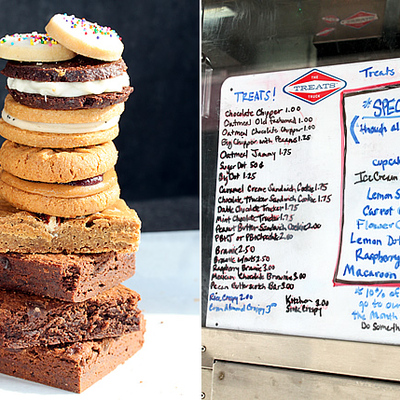 THE
TREATS
TRUCK
TREATS!
Chocolate Chipper 1.00
Oatmeal Old Fashioned 1.00
Oatmeal Chocolate Chipper 1.00
Big Chipper with Pecans 1.25
Oatmeal Jammy 1.75
Sugar Dot 50¢
Big Dot 1.25
Caramel Creme Sandwich Cookie 1.75
Chocolate Trucker Sandwich Cookie 1.75
Double Chocolate Trucker 1.75
Mint Chocolate Trucker 1.75
Peanut Butter Sandwich Cookie 2.00
PB+J or PB+Chocolate 2.00
Brownie 2.50
Brownie 2.50
Raspberry Brownie 3.00
Mexican Chocolate Brownie 3.00
Pecan Butterscotch Bar 3.00
Rice Crispy 2.00
Almond Crispy 3.00
Kitchen 3.00
Sink Crispy
Treats
SPEC
though al
cupc
Ice Cream
Lemon S
Carrot
Flower C
Lemon Dot
Raspberry
Macaroon
10% of
go to our
the Month
Do Someth